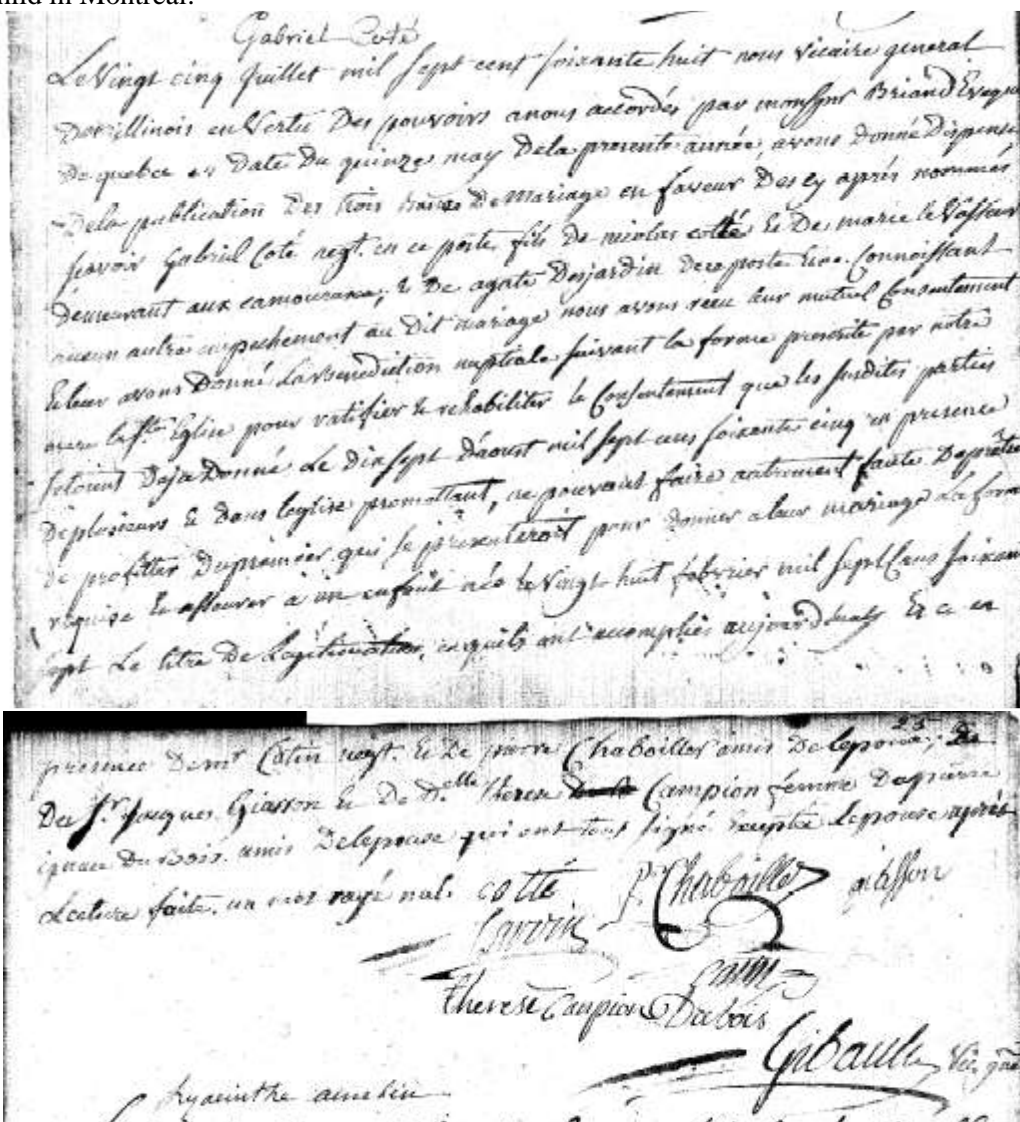 in Montreal.
Gabriel Coté
Le Vingt cinq Juillet mil sept cent soixante huit nous vicaire general
Des illinois en Vertu Des pouvoirs a nous accordés par monsgnr Briand Eveque
De quebec en Date Du quinze may De la presente année, avons Donné Dispense
De la publication Des trois bans De mariage en faveur Des cy aprés nommés
scavoir Gabriel Coté negt. en ce poste fils De nicolas cotté & De marie le Vasseur
Demeurant aux camouraxa; & De agate Desjardin De ce poste & ne Connoissant
aucun autre empechement au Dit mariage nous avons recu leur mutuel Consentement
& leur avons Donné La Benediction nuptiale suivant la forme prescrite par notre
mere la Ste Eglise pour ratifier & rehabiliter le Consentement que les susdites parties
s'etoient Deja Donné Le Dix sept D'aoust mil sept cens soixante cinq en presence
De plusieurs & Dans leglise promettant, ne pouvant faire autrement faute De prêtre
De profitter Du premier qui se presenteroit pour Donner a leur mariage La forme
requise & assurer à un enfant née le Vingt huit febvrier mil sept Cens soixante
sept Le titre De Legitimation, ce quils ont accomplis aujourd'huy & ce en
25
presence De mr Cotin negt. & De pierre Chaboiller amis De lepoux;
De Sr. Jacques Giasson & De D.elle therese Campion femme De pierre
ignace Du Bois amis De lepouse qui ont tous signé excepté Lepouse après
Lecture faite. un mot rayé nul. cotté P. Chaboillez giasson
Cotin
therese Campion Dubois
Gibault Vic. gnal
hyacinthe amelin